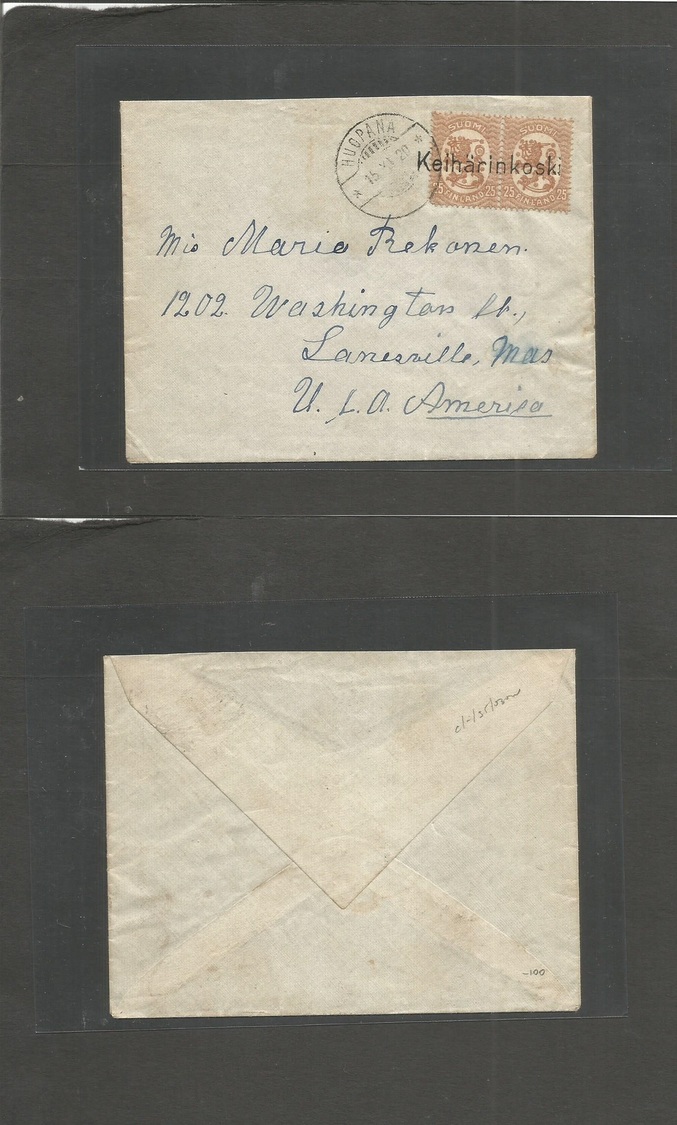 HUOPANA
15.XI.20
SUOMI SUOMI
Kelhärinkoski
25 25 25 25
FINLAND FINLAND
Mis Maria Rekonen.
1202. Washington St.,
Lanesville, Mas
U. S. A. America
-100